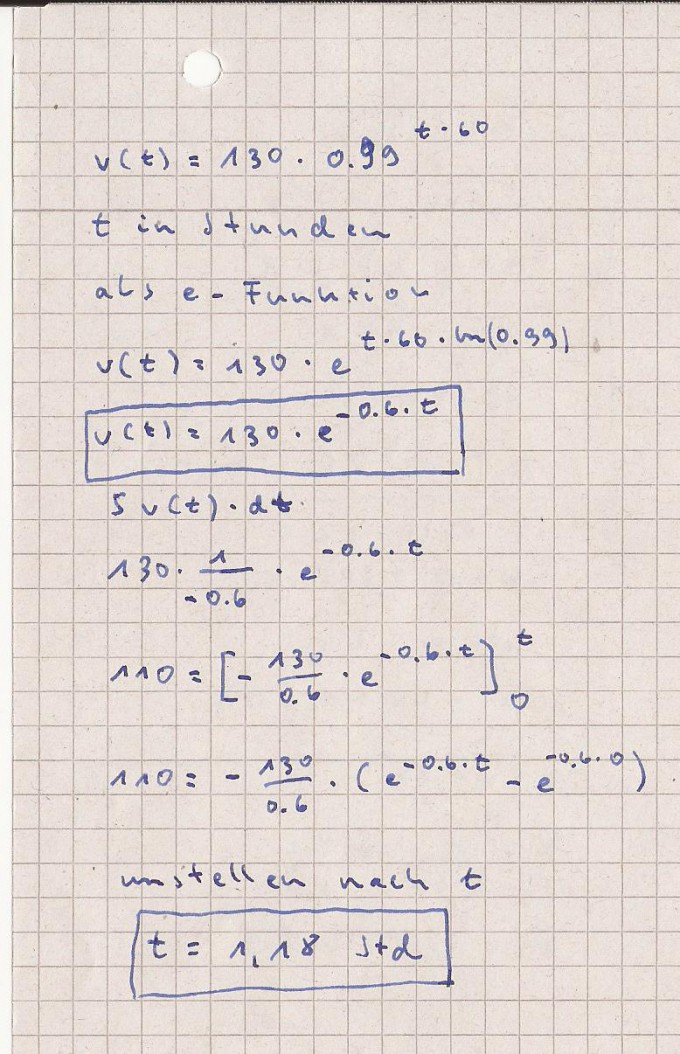 v(t) = 130 · 0.99^(t · 60)
t in Stunden
als e-Funktion
v(t) = 130 · e^(t · 60 · ln(0.99))
v(t) = 130 · e^(-0.6 · t)
∫ v(t) · dt
130 · 1/(-0.6) · e^(-0.6 · t)
110 = [- 130/0.6 · e^(-0.6 · t)]_0^t
110 = - 130/0.6 · (e^(-0.6 · t) - e^(-0.6 · 0))
umstellen nach t
t = 1,18 Std